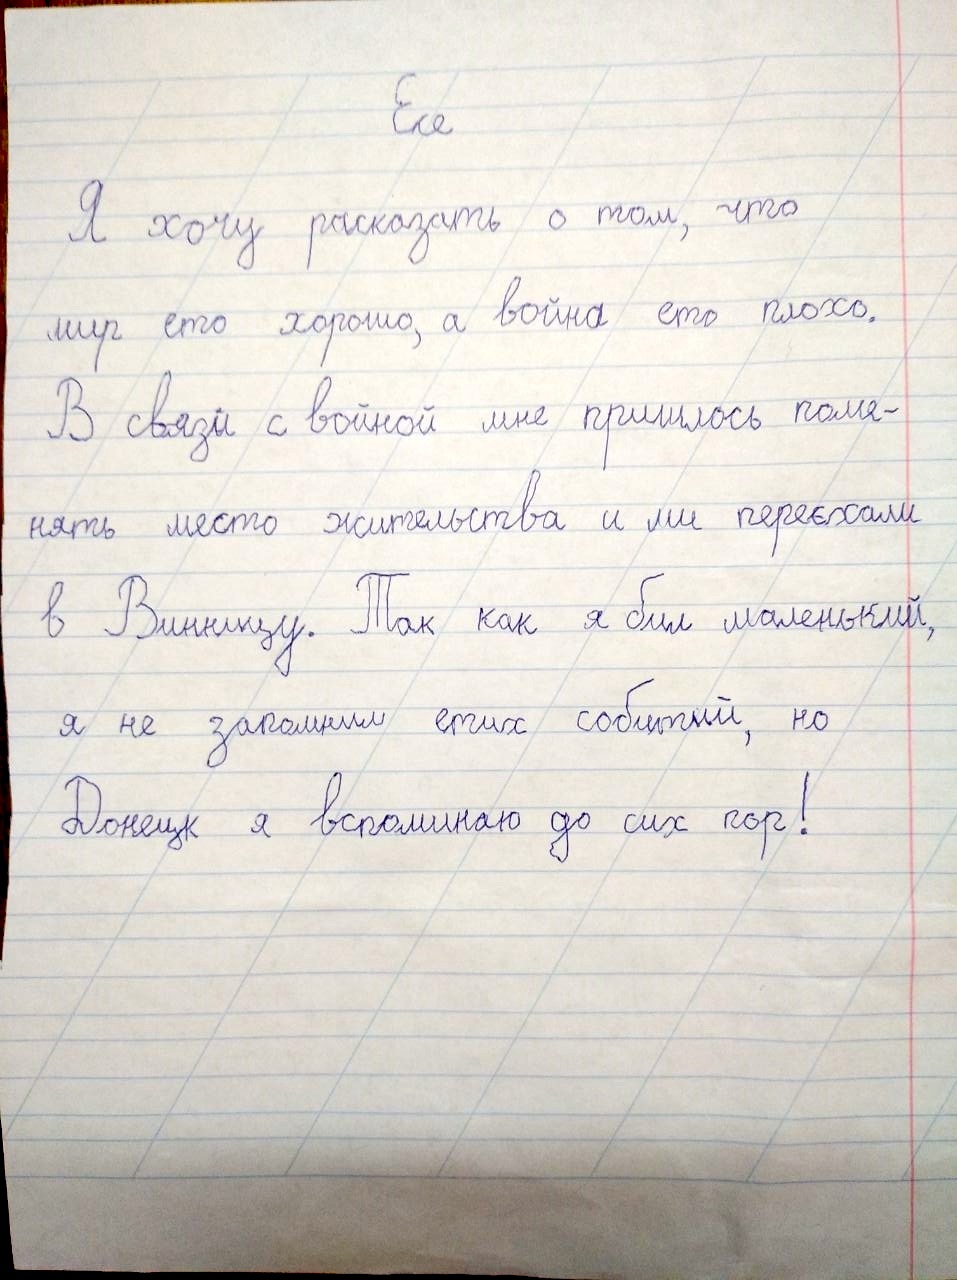 Есе
Я хочу расказать о том, что
мир ето хорошо, а война ето плохо.
В связи с войной мне пришлось поме-
нять место жительства и ми переєхали
в Винницу. Так как я бил маленький,
я не запомнил етих собитий, но
Донецк я вспоминаю до сих пор!